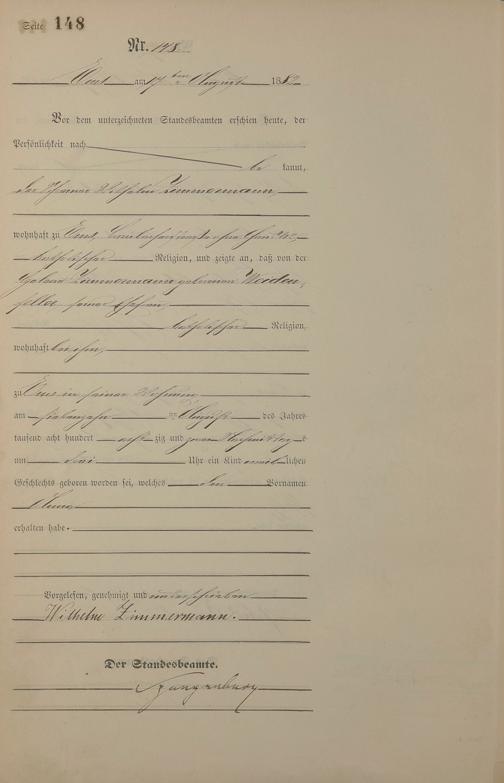 Seite 148
Nr. 148
am 17 ten August 1882
Vor dem unterzeichneten Standesbeamten erschien heute, der
Persönlichkeit nach
be kannt,
der Wilhelm Zimmermann,
wohnhaft zu
katholischer Religion, und zeigte an, daß von der
Zimmermann geborenen Weiden
feller seiner Ehefrau,
katholischer Religion,
wohnhaft bei ihm,
zu in seiner Wohnung
am siebenzehn ten August des Jahres
tausend acht hundert acht zig und zwei Nachmittag s
um drei Uhr ein Kind weib lichen
Geschlechts geboren worden sei, welches den Vornamen
erhalten habe.
Vorgelesen, genehmigt und unterschrieben
Wilhelm Zimmermann.
Der Standesbeamte.